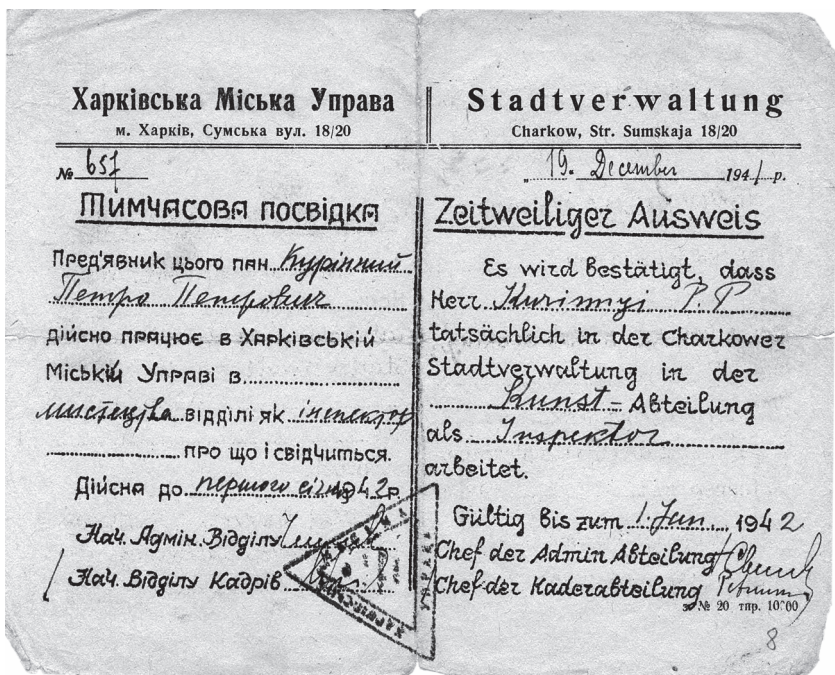 Харківська Міська Управа
м. Харків, Сумська вул. 18/20
№ 657
Тимчасова посвідка
Пред'явник цього пан Курінний
Петро Петрович
дійсно працює в Харківській
Міській Управі в
мистецтва відділі як інспектор
про що і свідчиться.
Дійсна до першого січня 1942 р.
Нач. Адмін. Відділу
Нач. Відділу Кадрів
Stadtverwaltung
Charkow, Str. Sumskaja 18/20
19. December 1941 р.
Zeitweiliger Ausweis
Es wird bestätigt, dass
Herr Kurinnyi P. P
tatsächlich in der Charkower
Stadtverwaltung in der
Kunst - Abteilung
als Inspektor
arbeitet.
Gültig bis zum 1. Jan. 1942
Chef der Admin Abteilung
Chef der Kaderabteilung
з. № 20 тир. 10000
8
УПРАВА